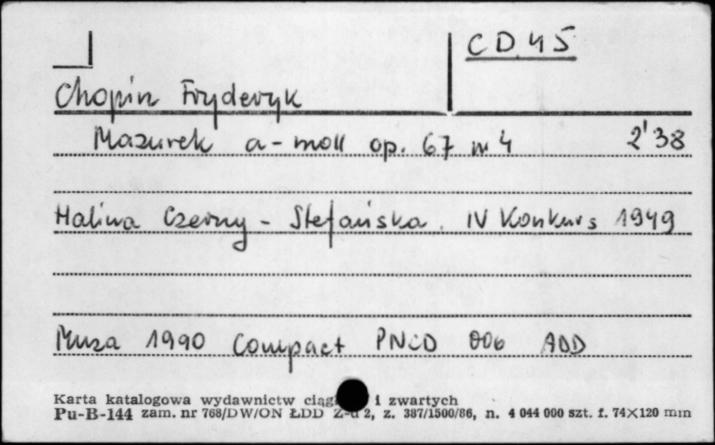 CD 45
Chopin Fryderyk
Mazurek a-moll op. 67 nr 4 2'38
Halina Czerny-Stefańska. IV Konkurs 1949
Muza 1990 Compact PNCD 006 ADD
Karta katalogowa wydawnictw i zwartych
Pu-B-144 zam. nr 768/DW/ON ŁDD 2, z. 387/1500/86, n. 4 044 000 szt. f. 74×120 mm